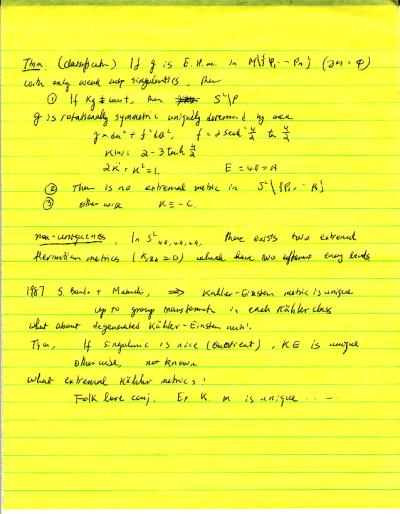 Thm. (classification) If g is E.H.m. in M\{P1 ... Pn} (∂M = φ)
with only weak cusp singularities, then
① If Kg ≠ const, then S²\P
g is rotationally symmetric uniquely determined by area
g = du² + f²dθ²,
K(u) =
E = 4π = A
② There is no extremal metric in S²\{P1, .. }
③ otherwise K ≡ -C.
non-uniqueness, In S² there exists two extremal
Hermitian metrics which have two different energy levels
1987 S. Bando + Mabuchi, ⇒ Kähler-Einstein metric is unique
up to group transformation in each Kähler class
What about degenerated Kähler-Einstein metric.
If singularity is nice (Quotient), KE is unique
otherwise, not known
What extremal Kähler metrics?
Folk lore conj. Ex K. m is unique ......